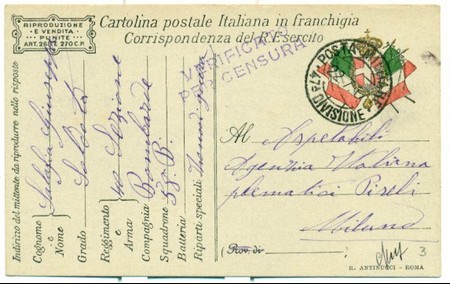 RIPRODUZIONE
E VENDITA
PUNITE
ART. 266 E 270 C.P.
Cartolina postale Italiana in franchigia
Corrispondenza del R. Esercito
VERIFICATO
PER CENSURA
POSTA MILITARE
47ª DIVISIONE
Indirizzo del mittente da riprodurre nelle risposte
Cognome e Nome Giuseppe
Grado Soldato
Reggimento e Arma Sezione
Compagnia Bombarde
Squadrone 58. B.
Batteria
Riparti speciali Zona di guerra
Al Spetabili
Agenzia Italiana
pneumatici Pireli
Milano
(Prov. di
3
R. ANTINUCCI - ROMA